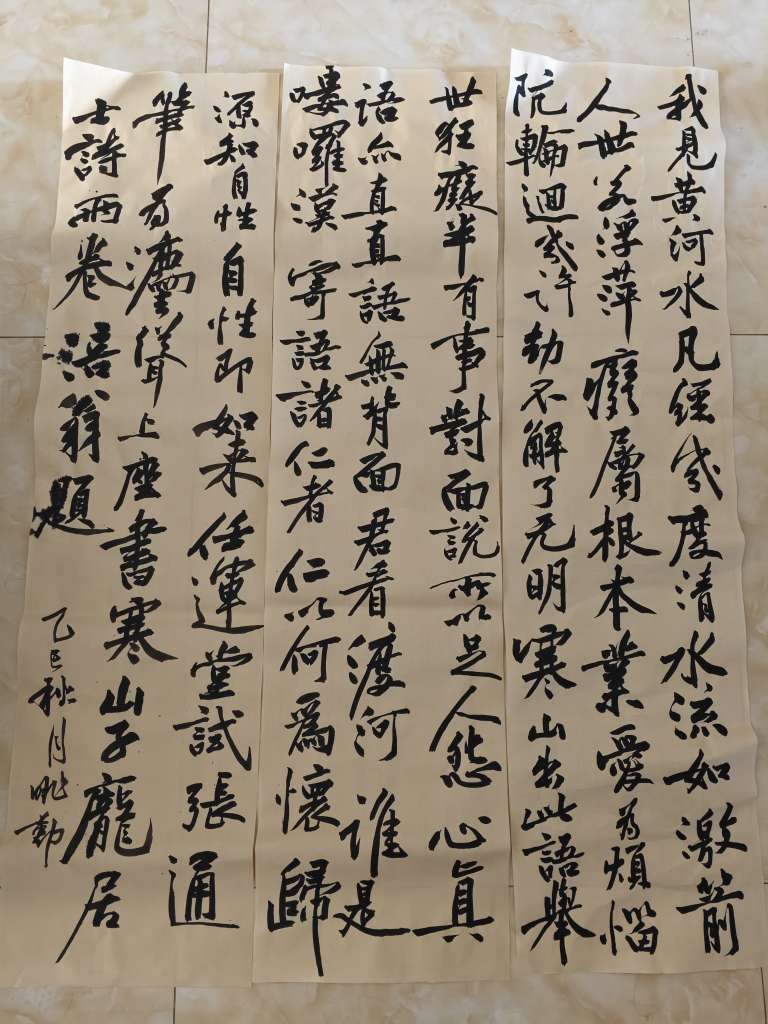 我見黃河水凡經幾度清水流如激箭
人世若浮萍癡屬根本業愛為煩惱
阬輪迴幾許劫不解了无明寒山出此語舉
世狂癡半有事對面說所以足人怨心真
語亦直直語無背面君看渡河誰是
嘍囉漢寄語諸仁者仁以何為懷歸
源知自性自性即如来任運堂試張通
筆為灋聳上座書寒山子龐居
士詩兩卷涪翁題
乙巳秋月勤